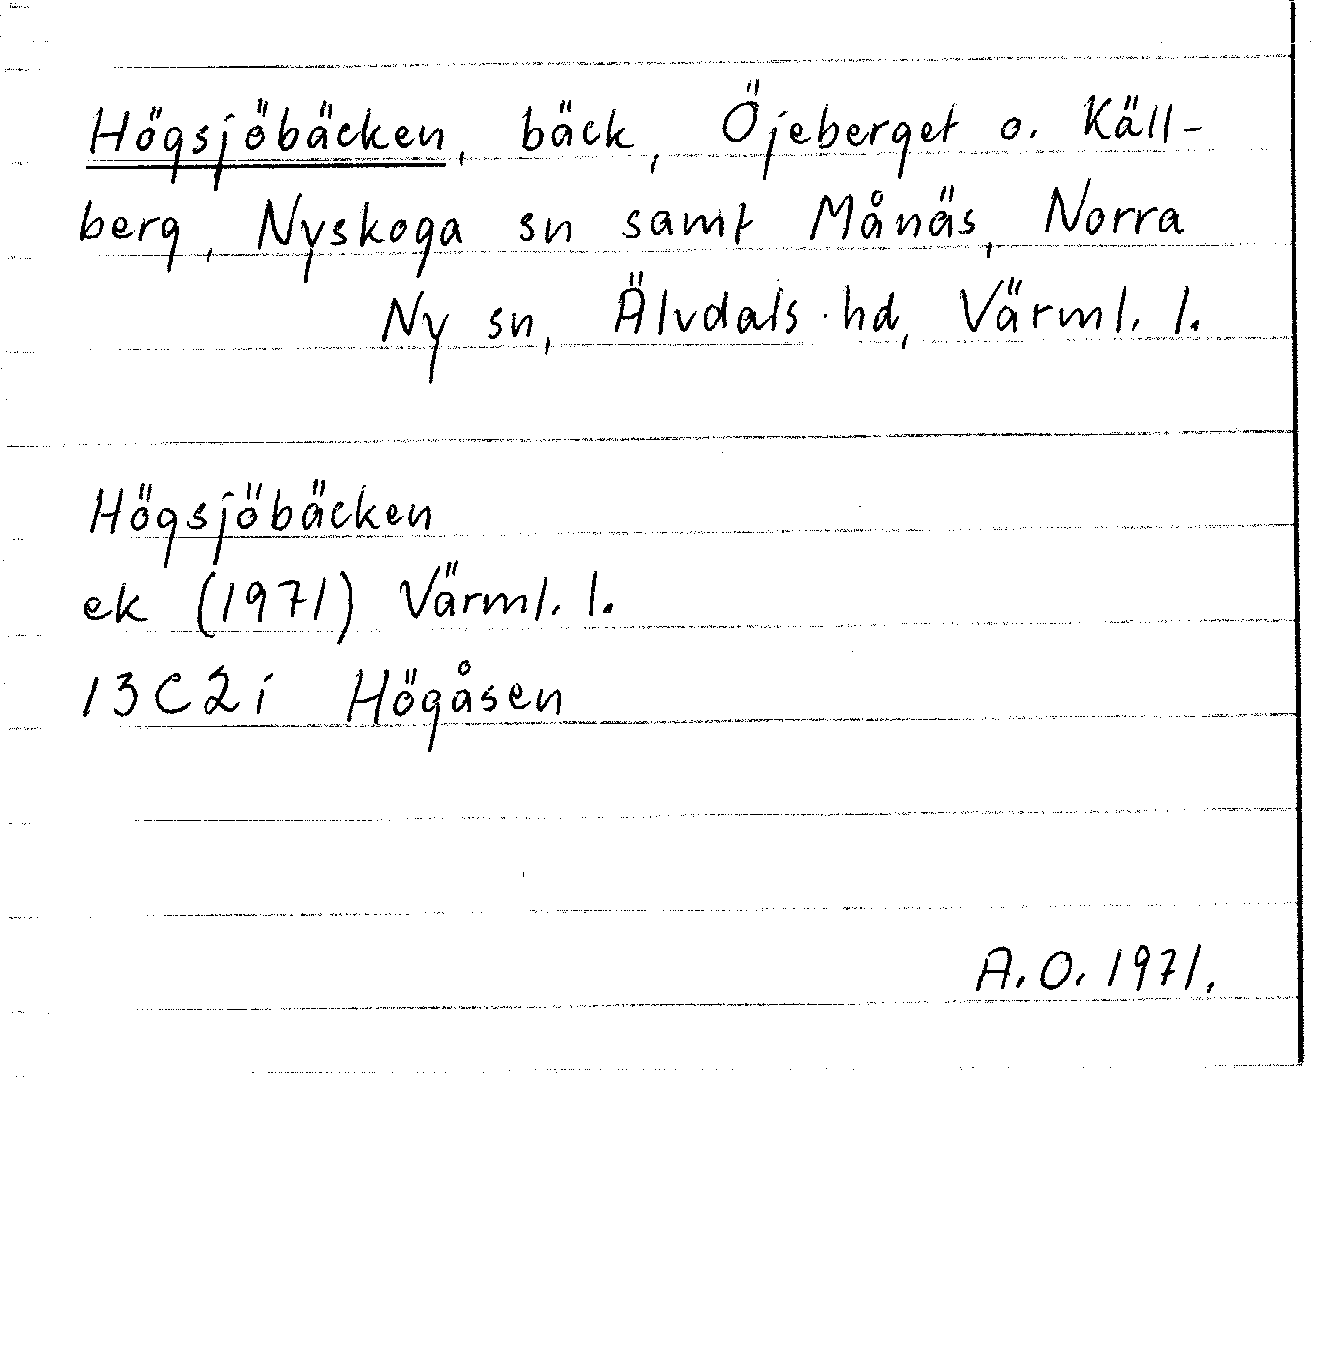 Högsjöbäcken, bäck, Öjeberget o. Käll-
berg, Nyskoga sn samt Månäs, Norra
Ny sn, Älvdals hd, Värml. l.
Högsjöbäcken
ek (1971) Värml. l.
13C2i Högåsen
A.O. 1971.